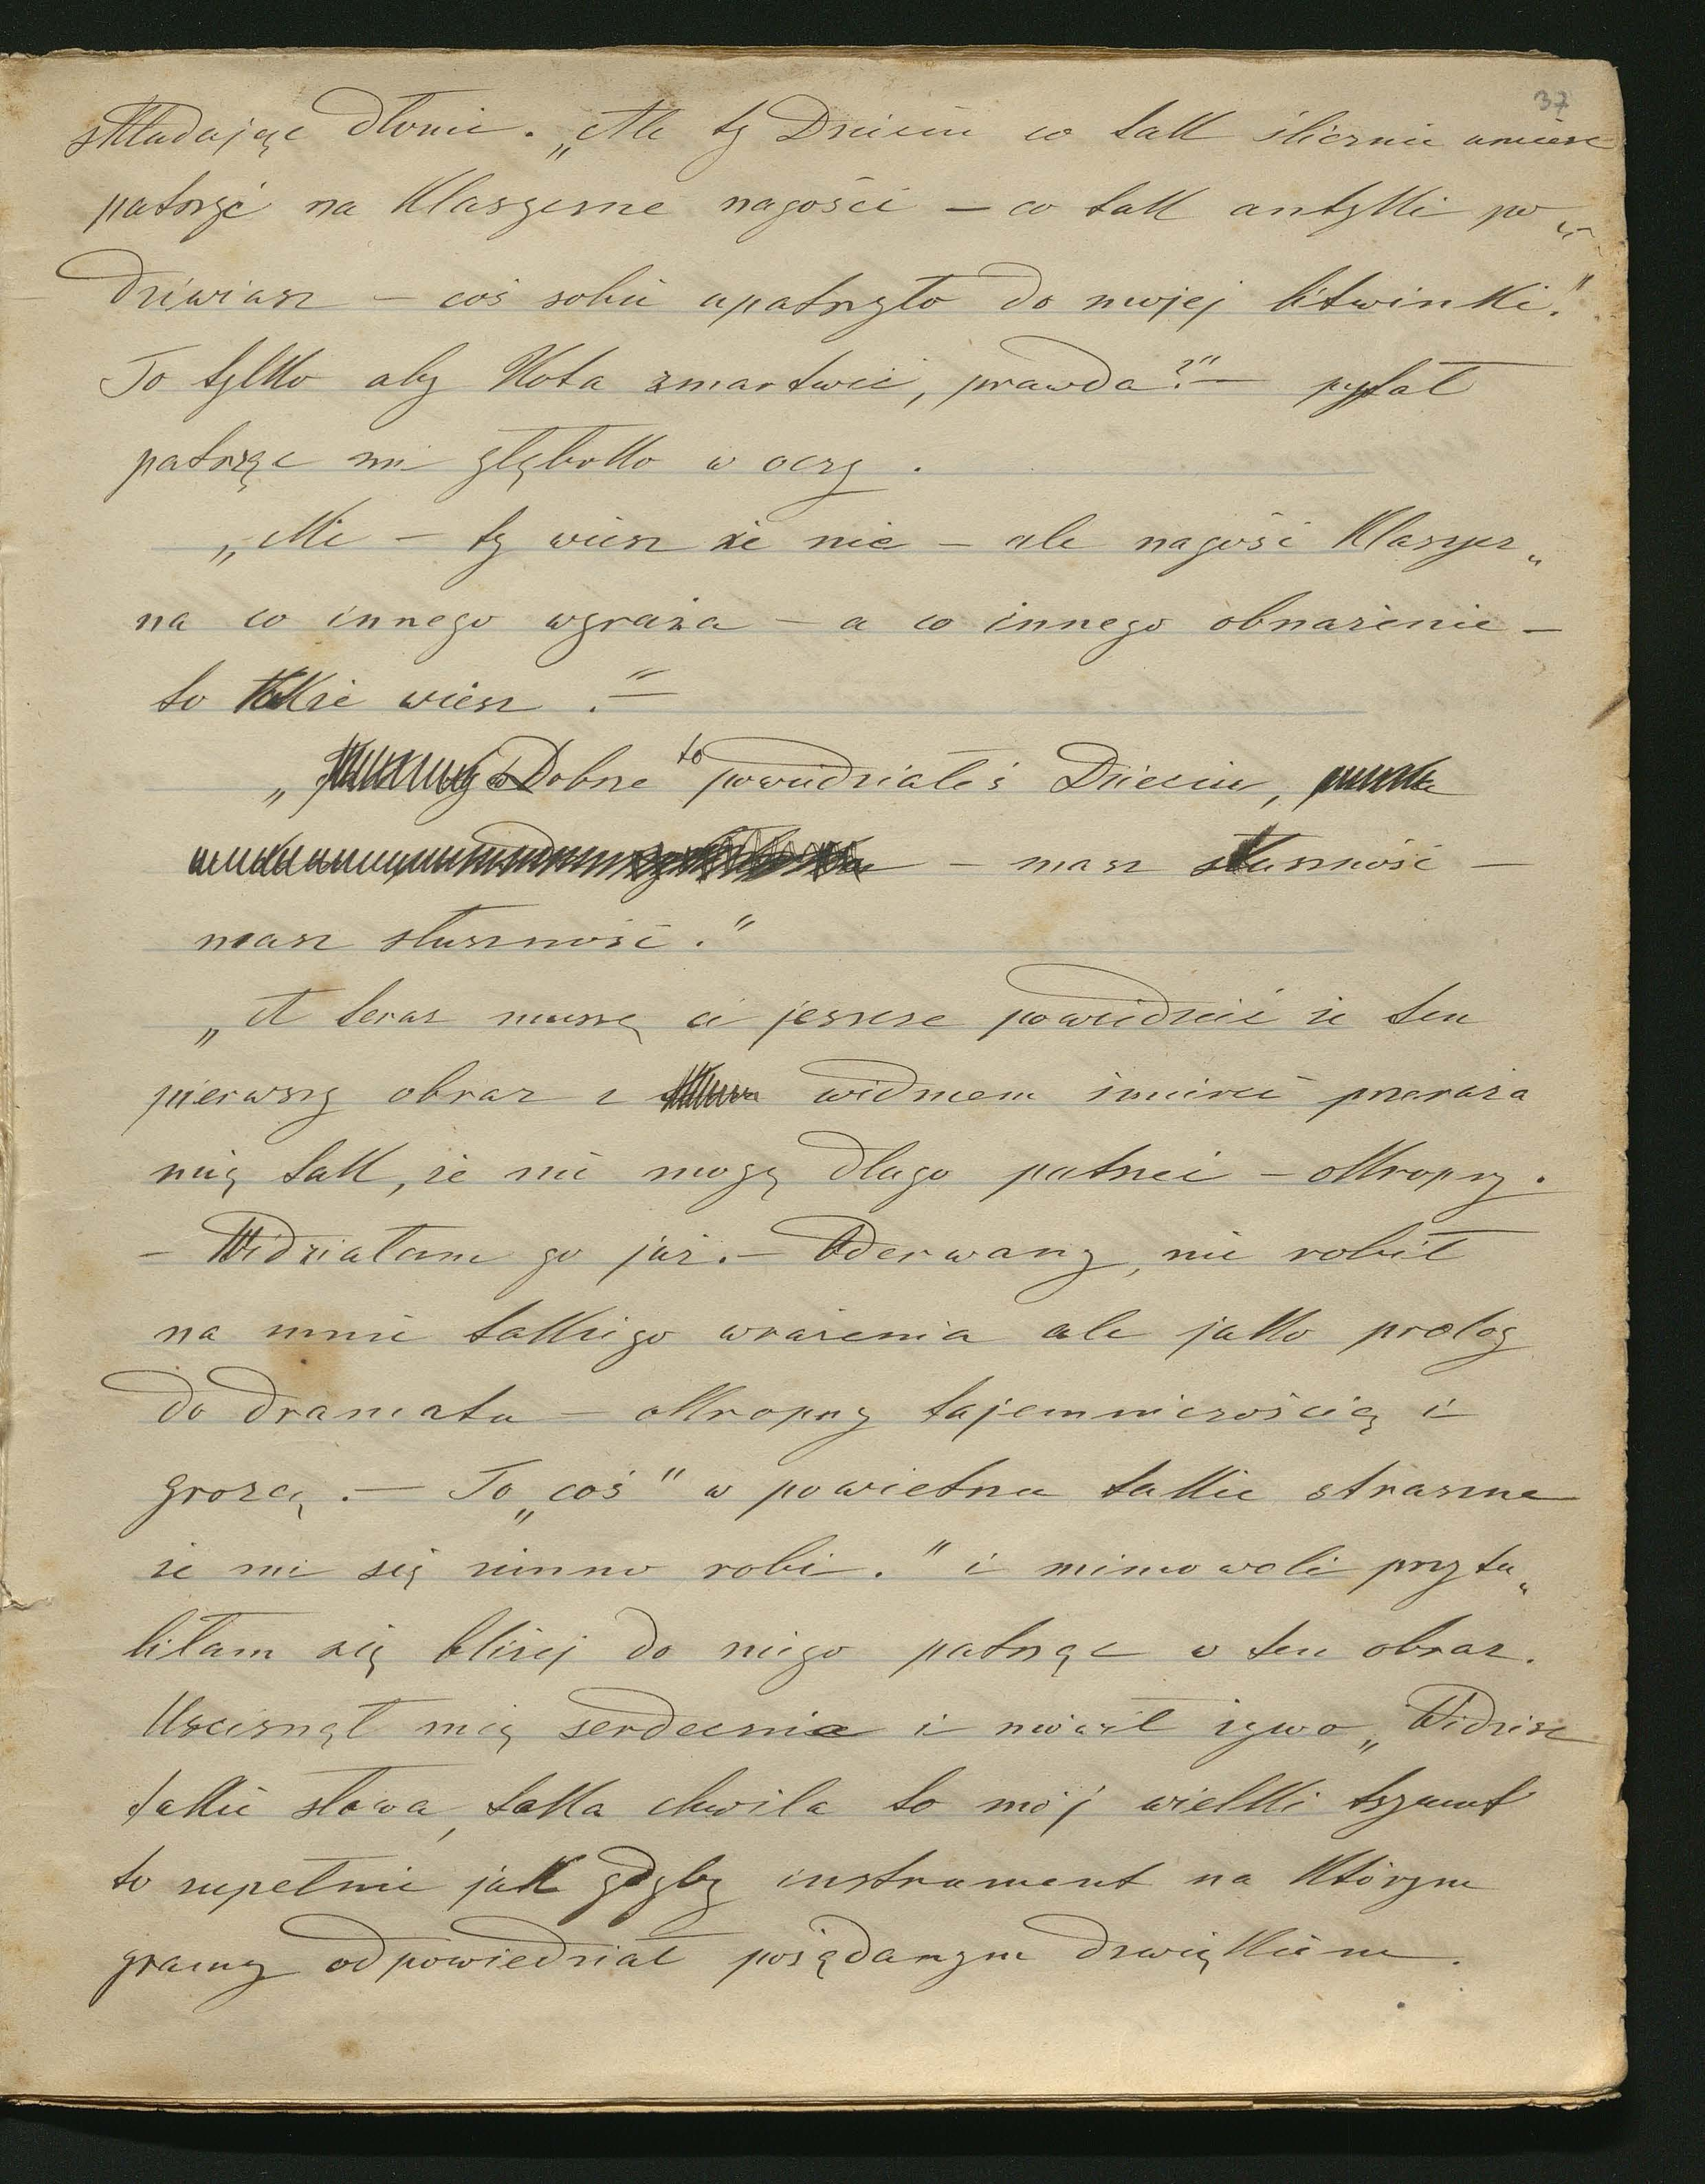 37
składając dłonie. „Ale ty Dziecię co tak ślicznie umiesz
patrzyć na klasyczne nagości – co tak antyki po„
dziwiasz – coś sobie upatrzyło do mojej litwinki."
To tylko aby Kota zmartwić, prawda?" – pytał
patrząc mi głęboko w oczy.
„Nie – ty wiesz że nie – ale nagość klasycz„
na co innego wyraża – a co innego obnażenie –
to także wiesz." –
„Dobrze to powiedziałeś Dziecię,
– masz słuszność –
masz słuszność."
„A teraz muszę ci jeszcze powiedzieć że ten
pierwszy obraz z widmem śmierci przeraża
mię tak, że nie mogę długo patrzeć – okropny.
– Widziałam go już. – Oderwany, nie robił
na mnie takiego wrażenia ale jako prolog
do dramatu – okropny tajemniczością i
grozą. – To „coś" w powietrzu takie straszne
że mi się zimno robi." i mimowoli przytu„
liłam się bliżej do niego patrząc w ten obraz.
Uścisnął mię serdecznie i mówił żywo „Widzisz
takie słowa, taka chwila to mój wielki tryumf
to zupełnie jak gdyby instrument na którym
gramy odpowiedział pożądanym dźwiękiem.